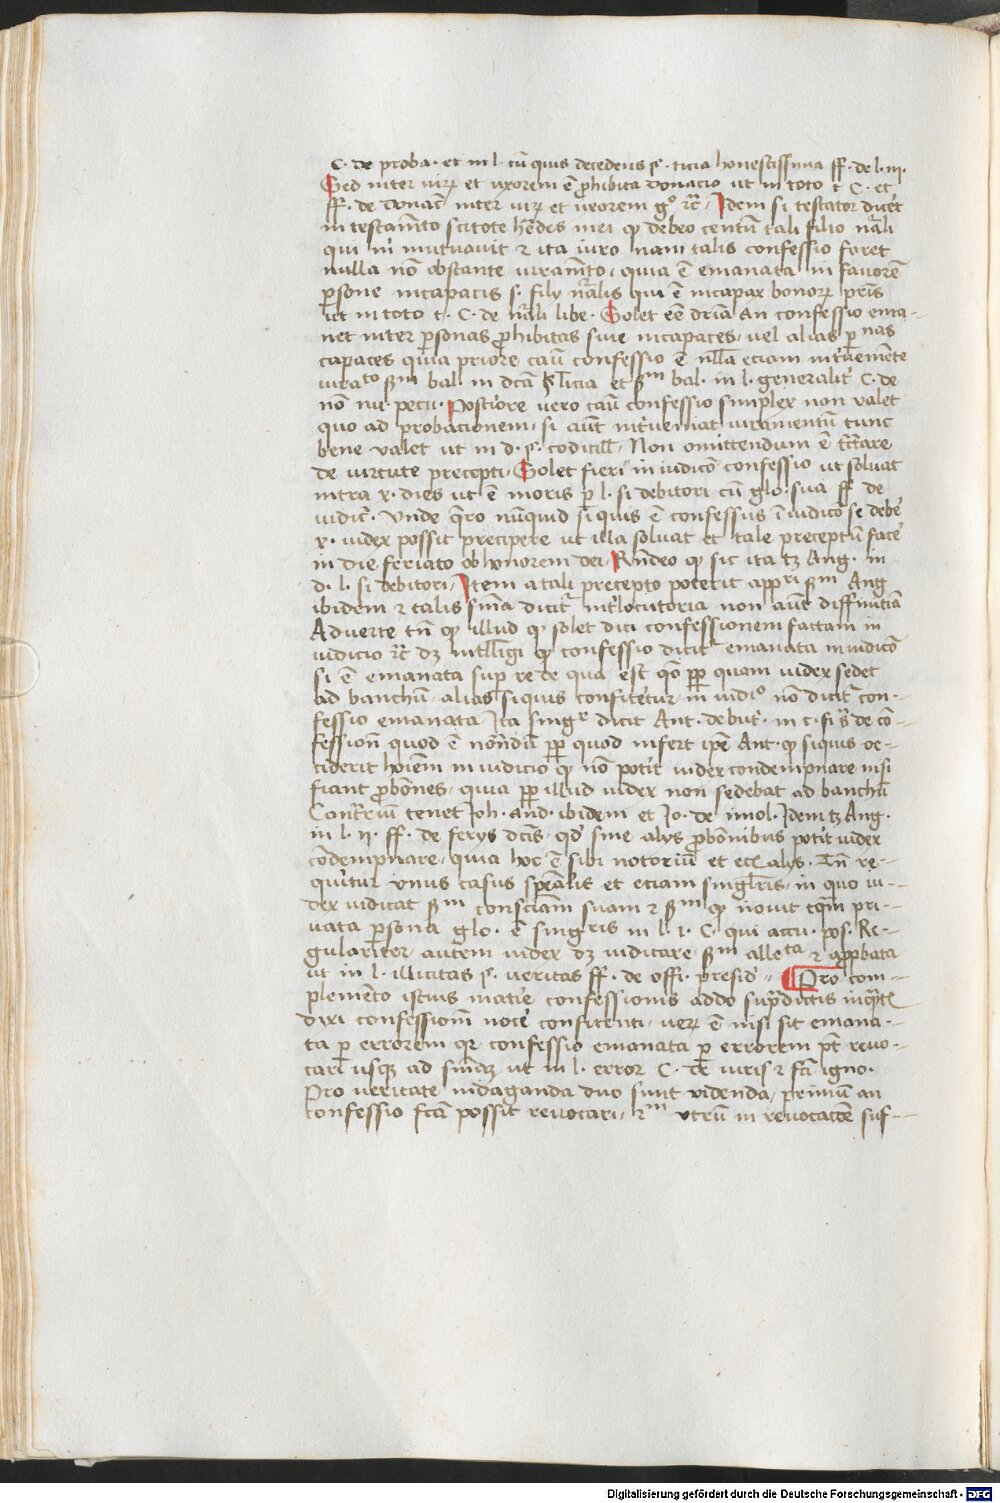 C. de proba. et in l. cū quis decedens §. ticia honestissima ff. de l. iij.
Sed inter virꝝ et uxorem ē ꝓhibita donacio ut in toto t. C. et
ff. de donac̄ inter virꝝ et uxorem gº ⁊c̄. Idem si testator dic̄et
in testam̄to scitote h̄edes mei ꝙ debeo centū tali filio nāli
qui m̄ mutuavit ⁊ ita iuro nam talis confessio foret
nulla nō obstante iuram̄to, quia ē emanata in favorē
ꝑsone incapacis s. filij nr̄alis qui ē incapax bonorꝝ pr̄is
ut in toto t. C. de nr̄ali libe. Solet eē dr̄ia An confessio ema-
net inter ꝑsonas ꝓhibitas sive incapaces, vel alias ꝑnas
capaces quia priore casu confessio ē nll̄a eciam int̄veniente
iurato ẜm bal. in dc̄a §. ticia et ẜm bal. in l. generalit̄ C. de
nō nu. pecu. Postiore vero casu confessio simplex non valet
quo ad probationem, si aūt int̄veniat iuramentū tunc
bene valet ut in d. §. codicill. Non omittendum ē tc̄tare
de virtute precepti. Solet fieri in iudicō confessio ut solvat
intra x. dies ut ē moris ꝑ l. si debitori cū glo. sua ff de
iudic̄. Unde q̄ro nūnquid si quis ē confessus ī iudicō se deb̄e
x. iudex possit precipere ut illa solvat et tale preceptū fac̄e
in die feriato ob honorem dei, Rn̄deo ꝙ sic ita tꝫ Ang. in
d. l. si debitori, Item a tali precepto poterit app̄ri ẜm Ang
ibidem ⁊ talis sn̄ia dicit̄ int̄locutoria non aūt diffinitia
Adverte tn̄ ꝙ illud ꝙ solet dici confessionem factam in
iudicio ⁊c̄ dꝫ intll̄igi ꝙ confessio dicit̄ emanata in iudicō
si ē emanata suꝑ re de qua est qō ꝓpꝑ quam iudex sedet
ad banchū alias siquis confitetur in iudiº nō dicit̄ con-
fessio emanata Ita sing̅ dicit Ant. de but. in c. fi s̄ de cō-
fession̄ quod ē notandū ꝓpꝑ quod infert ip̄e Ant. ꝙ siquis oc-
ciderit hoīem in iudicio ꝙ nō potīt iudex condempnare nisi
fiant ꝓbōnes, quia ꝓpꝑ illud iudex non sedebat ad banchū
Contr̄ium tenet Joh. And. ibidem et Jo. de imol. Idem tꝫ Ang.
in l. ij. ff. de ferijs dc̄is, qd̄ sine alijs ꝓbōnibus potit iudex
cōdempnare, quia hoc ē sibi notoriū et ecī alijs. In̄ re-
quiritur unus casus spc̄alis et eciam singl̄aris, in quo iu-
dex iudicat ẜm consciam̄ suam ⁊ ẜm ꝙ novit tꝗm pri-
vata ꝑsona glo. ē singris in l. i. C. qui accu. pos. Re-
gulariter autem iudex dꝫ iudicare ẜm alleta ⁊ aꝓbata
ut in l. illicitas §. veritas ff. de offi. presid. Pro com-
plemēto istius matīe confessionis addo supradictis inqn̄tū
dixi confessionem noc̄e confitenti, verꝝ ē nisi sit emana-
ta ꝑ errorem qꝛ confessio emanata ꝑ errorem pt̄ revo-
cari usqꝫ ad sn̄iaꝫ ut in l. error C. de iuris ⁊ fc̄i igno.
Pro veritate indaganda duo sunt videnda, primum an
confessio fc̄ta possit revocari, 2m utrū in revocatōe suf-
Digitalisierung gefördert durch die Deutsche Forschungsgemeinschaft - DFG